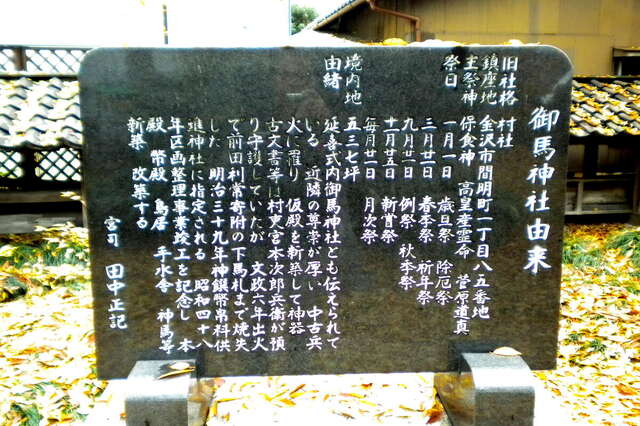 御馬神社由来
旧社格 村社
鎮座地 金沢市間明町一丁目八五番地
主祭神 保食神 高皇産霊命 菅原道真
祭日 一月一日 歳旦祭 除厄祭
三月廿一日 春季祭 祈年祭
九月廿一日 例祭 秋季祭
十一月廿五日 新嘗祭
毎月廿一日 月次祭
境内地 五三七坪
由緒 延喜式内御馬神社とも伝えられて
いる 近隣の尊崇が厚い 中古兵
火に罹り 仮殿を新築して神器
古文書等は村吏宮本次郎兵衛が預
り守護していたが 文政六年出火
で前田利常寄附の下馬札まで焼失
した 明治三十九年神饌幣帛料供
進神社に指定される 昭和四十八
年区画整理事業竣工を記念し 本
殿 幣殿 鳥居 手水舎 神馬等
新築 改築する
宮司 田中正記